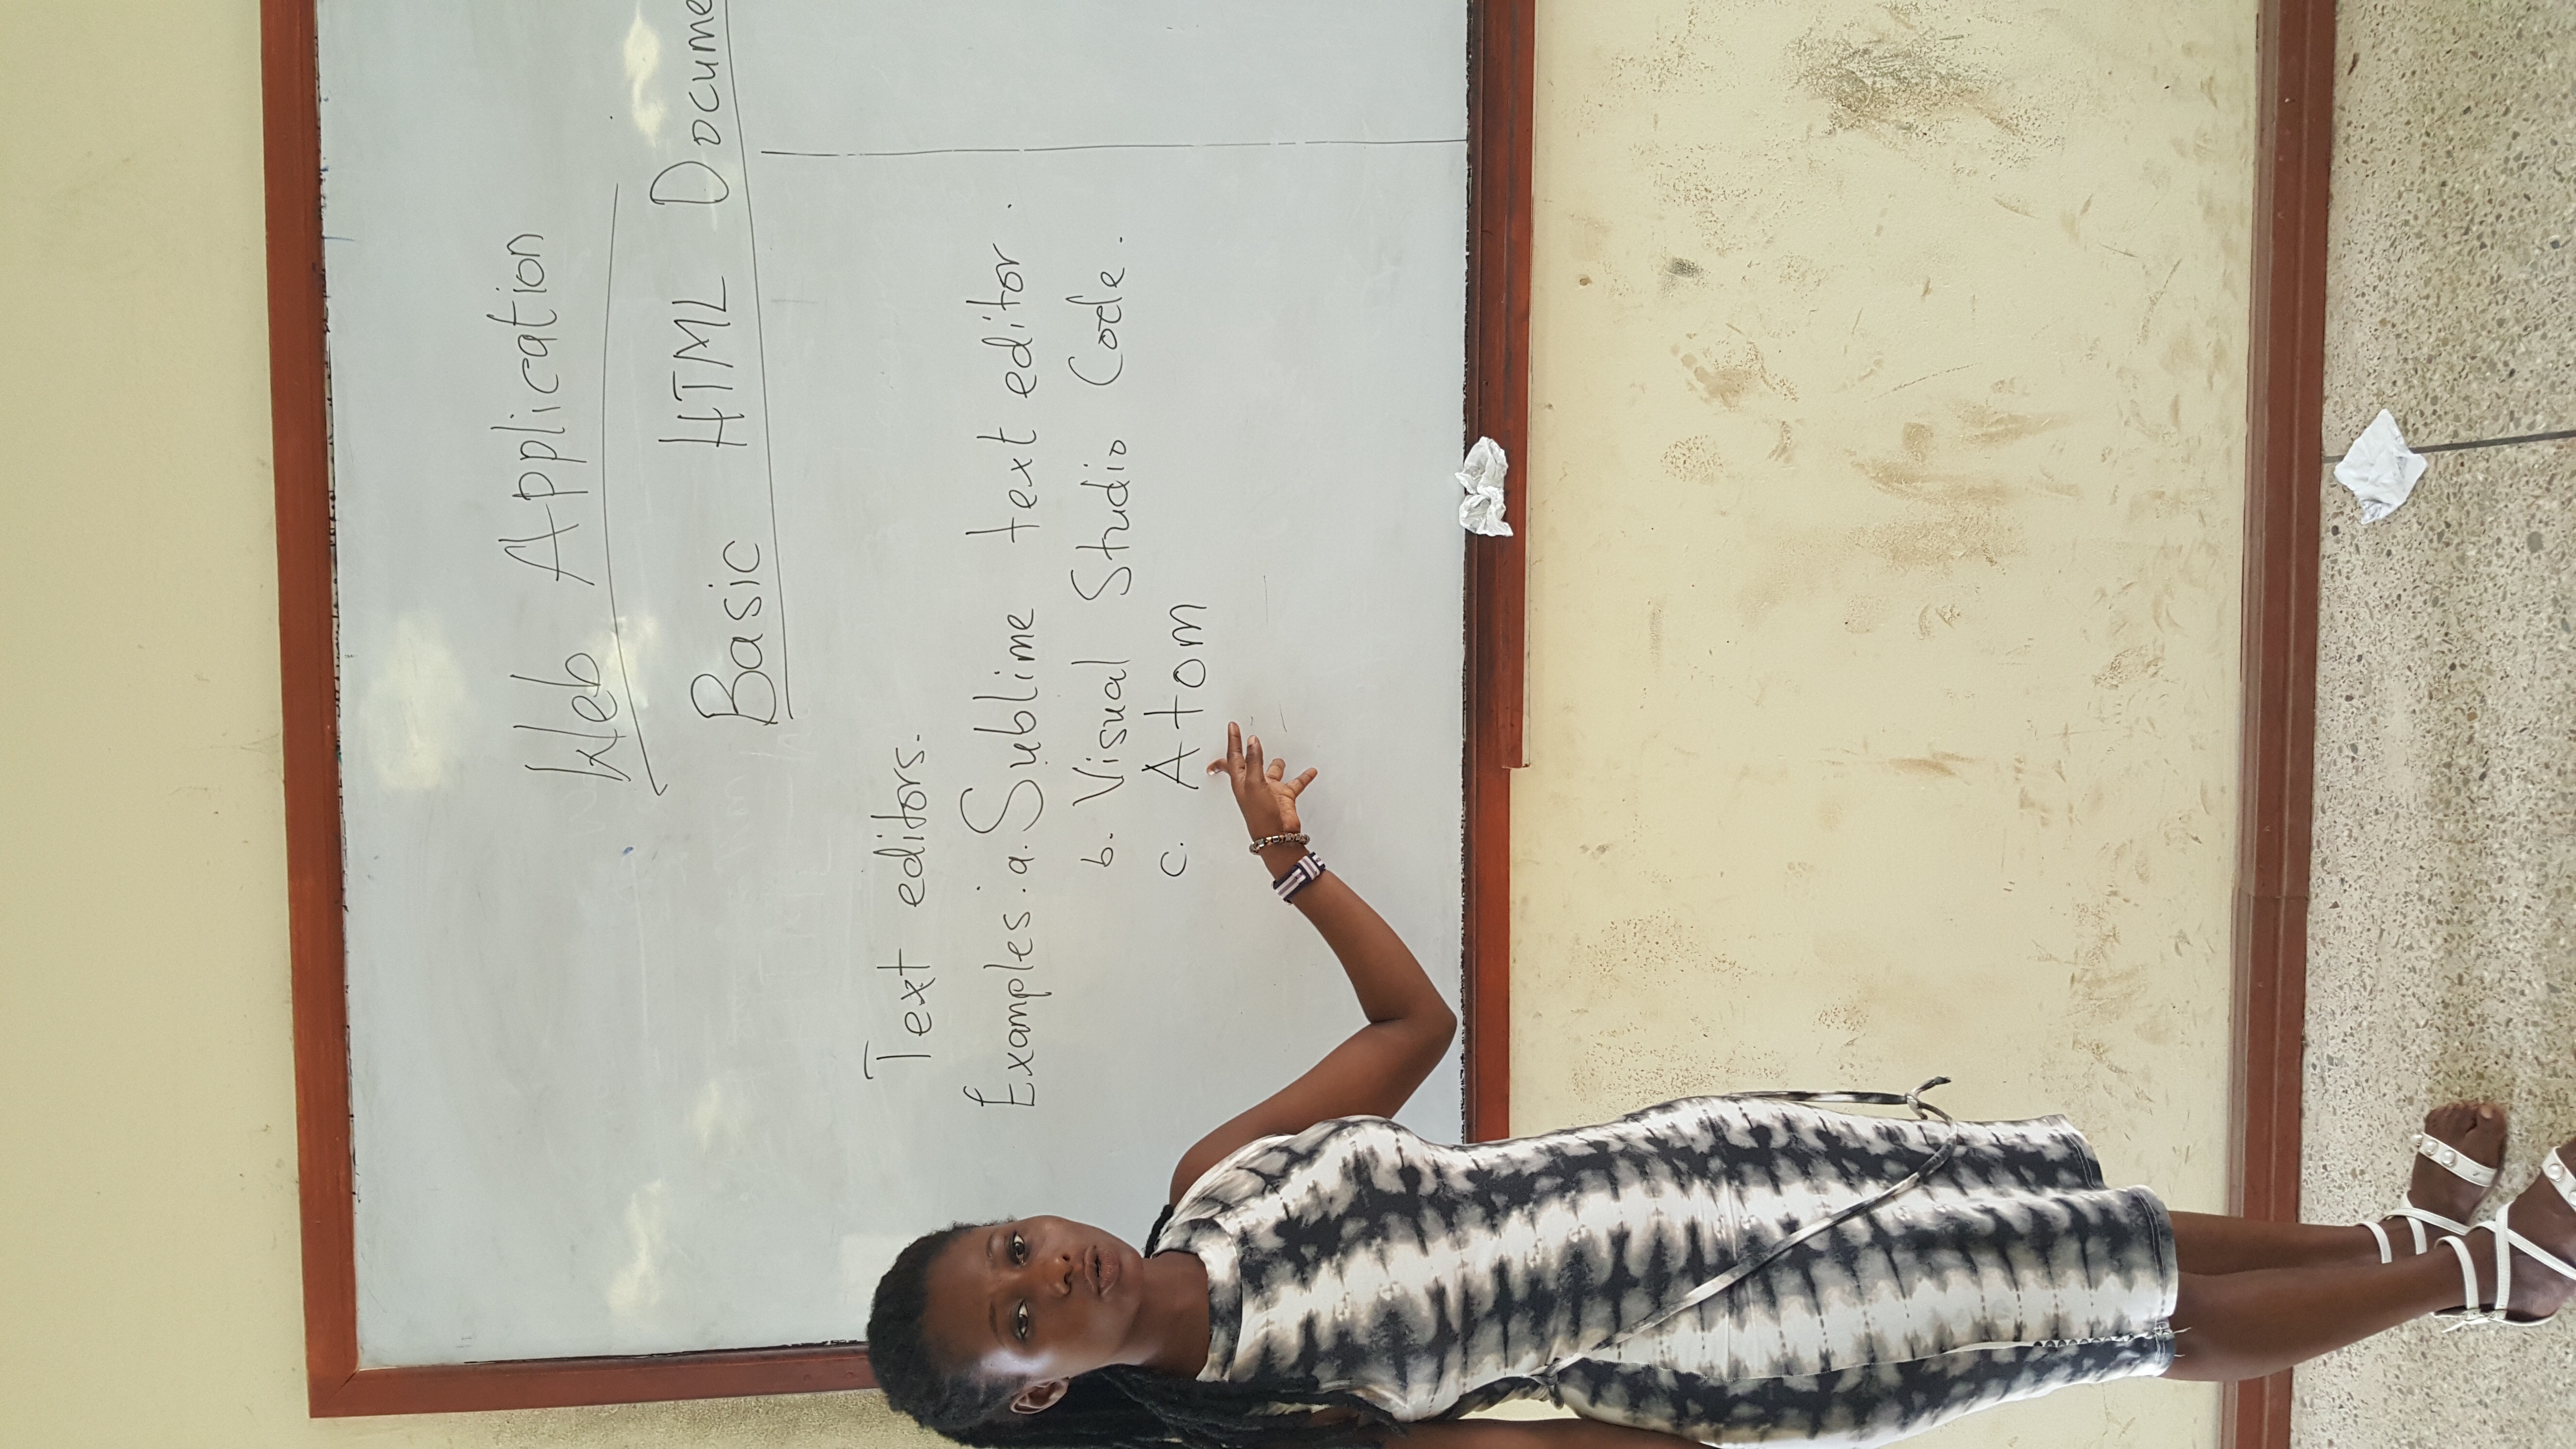 Web Application
Basic HTML Docume
Text editors.
Examples: a. Sublime text editor.
b. Visual Studio Code.
c. Atom